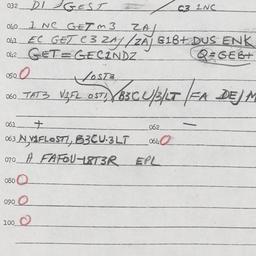 032 DI GEST / C3 INC
040 1 NC GET m3 ZAJ
041 EC GET C3 ZAJ /ZAJ G1B+ DUS ENK
042 GET=GEC1NDZ Q=GEB+
050 0 /OST3
060 TAT3 V1FL OST1/B3CU/3/LT /FA DEJM
061 + 062 -
063 N,V1FLOST1, B3CU-3LT 064 0
070 A FAFOU-18T3R EPL
080 0
090 0
100 0